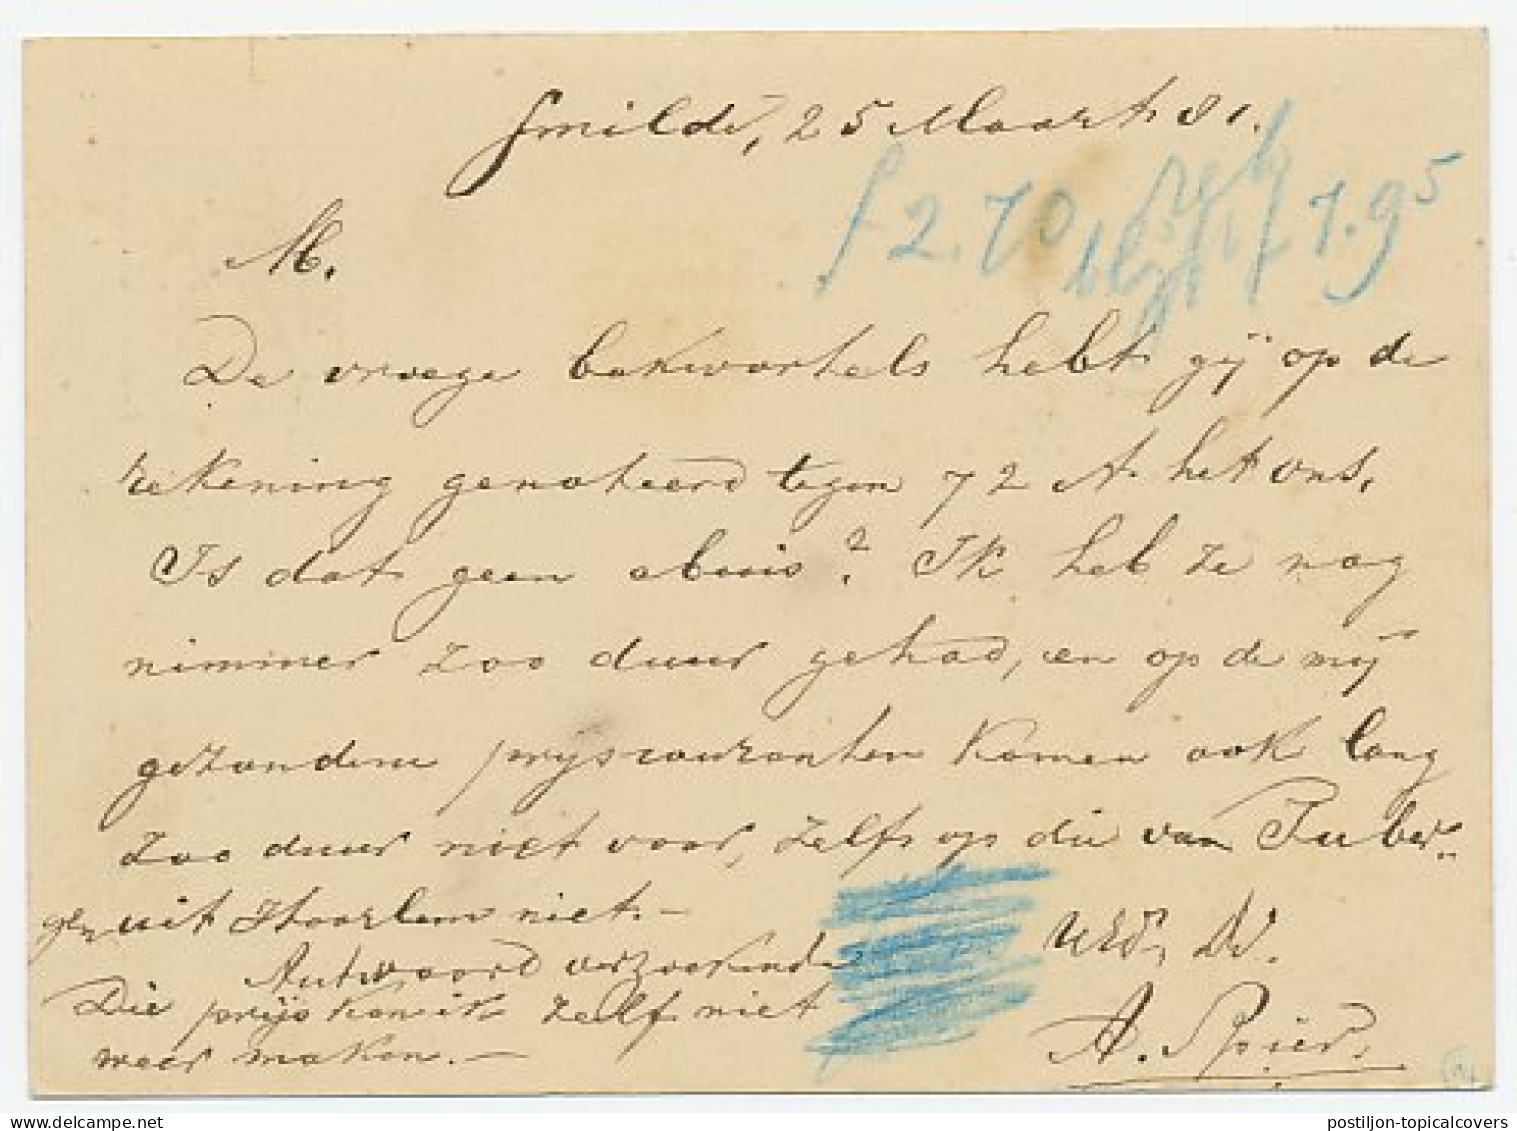 Smilde, 25 Maart 81.
f 2.70 blyft 7.95
M.
De vroege bakwortels hebt gij op de
rekening genoteerd tegen 72 ct. het ons.
Is dat geen abuis? Ik heb ze nog
nimmer zoo duur gehad, en op de mij
gezondene prijscouranten komen ook lang
zoo duur niet voor, zelfs op die van Tuber-
gen uit Haarlem niet. —
Antwoord verzoekende
UEd. Dr.
Die prijs kan ik zelf niet
weer maken. —
A. Spier.
postiljon-topicalcovers